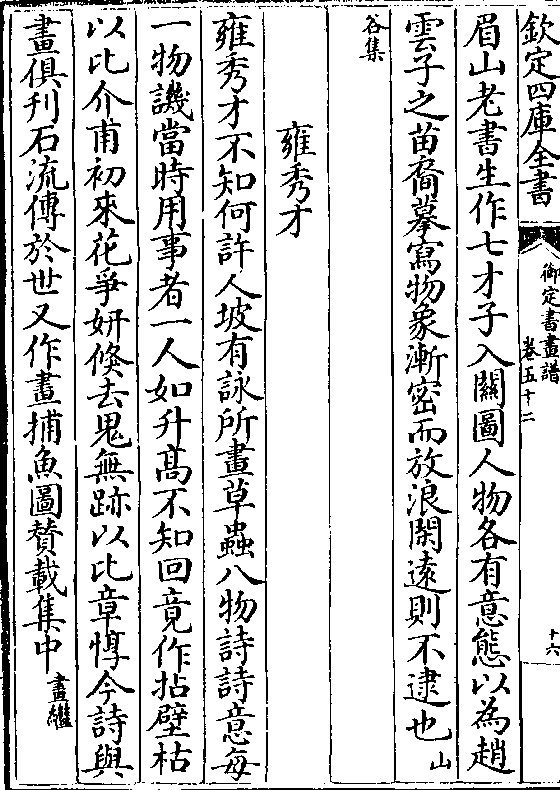 欽定四庫全書
御定書畫譜
卷五十二
十六
眉山老書生作七才子入關圖人物各有意態以為趙
雲子之苗裔摹寫物象漸密而放浪閒遠則不逮也山
谷集
雍秀才
雍秀才不知何許人坡有詠所畫草蟲八物詩詩意每
一物譏當時用事者一人如升髙不知回竟作拈壁枯
以比介甫初來花爭妍倐去鬼無跡以比章惇今詩與
畫俱刋石流傳於世又作畫捕魚圖贊載集中畫繼